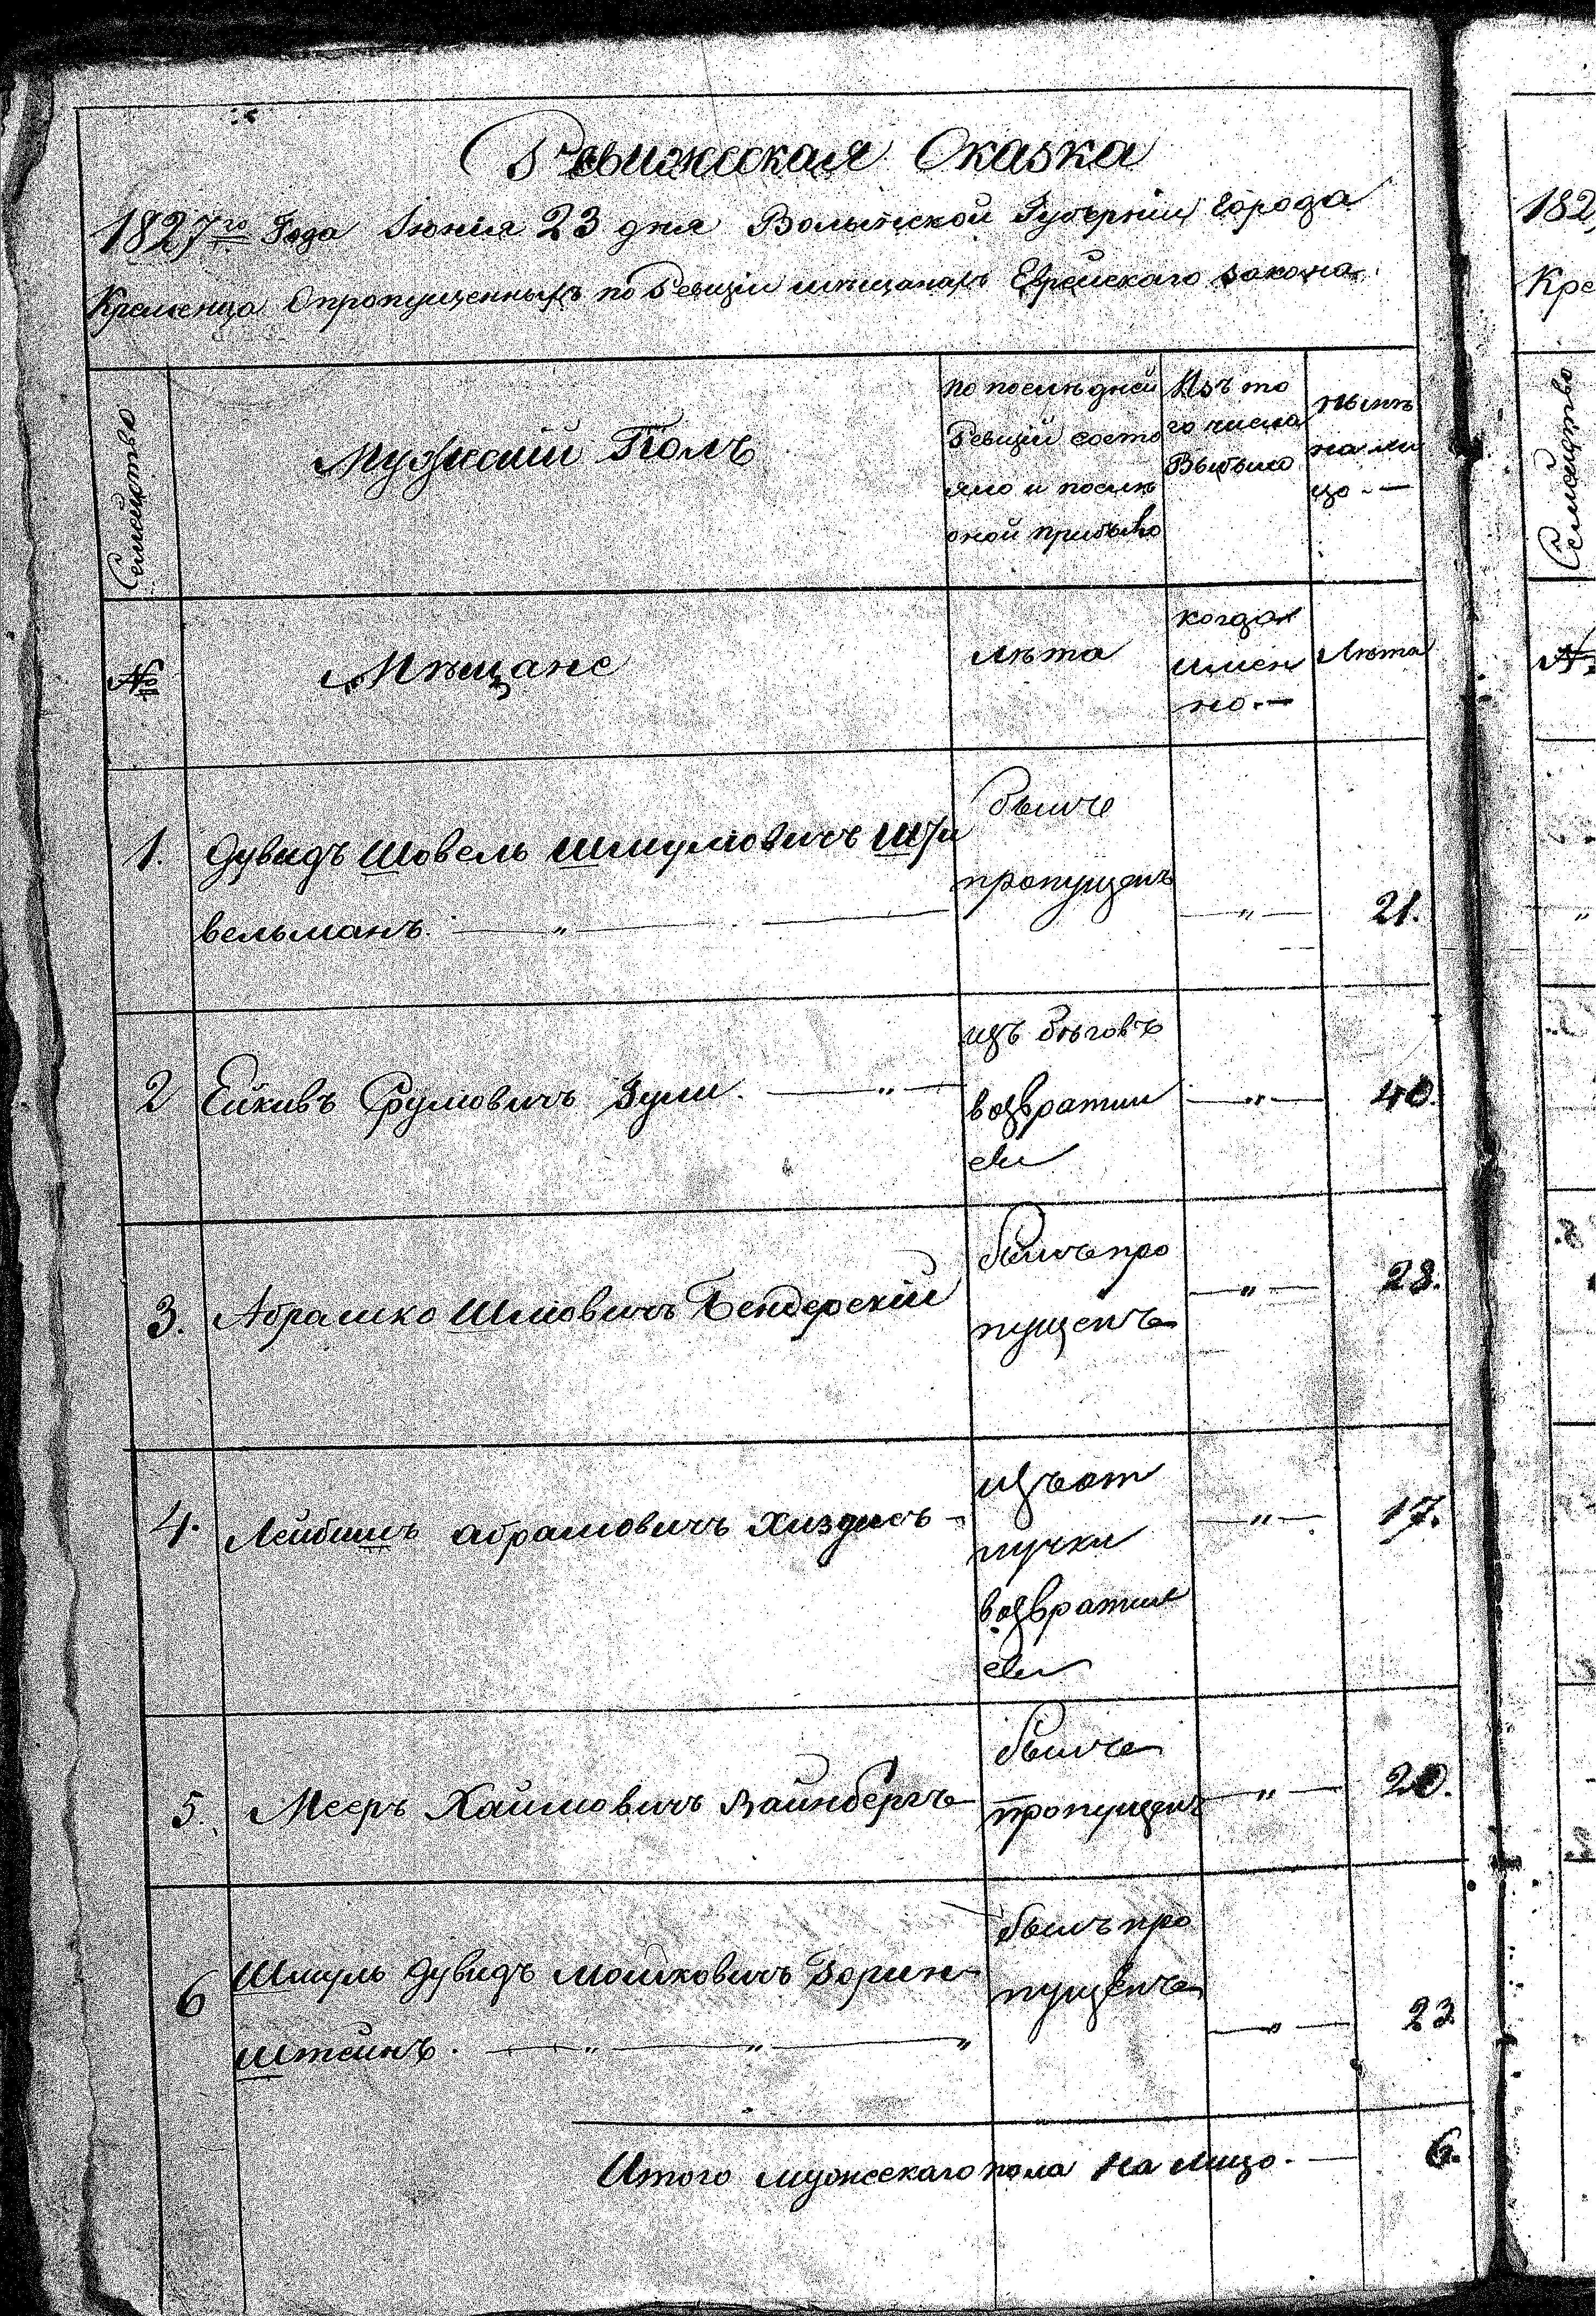 Ревижская Сказка
1827го Года Іюнія 23 дня Волынской Губерніи города
Кременца Опропущенныхъ по Ревизіи мещанахъ Еврейскаго закона.
Семейство
Мужескій Полъ
по последней
Ревизіи состо
яло и после
оной прибыло
Изъ то
го числа
Выбыло
ныне
на ли
цо -
№
Мещане
Лета
когда
имен
но.-
Лета
1. Дувидъ Шовель Шмулювичъ
вельманъ. — „ —
былъ
пропущенъ
— „ —
21.
2 Ейкивъ Срулювичъ
— „ —
изъ беговъ
возвратил
ся
— „ —
40.
3. Абрамко Шлиовичъ Бендерскій
былъ про
пущенъ
— „ —
28.
4. Лейбишъ абрамовичъ
изъ от
лучки
возвратил
ся
— „ —
17.
5. Мееръ Хаимовичъ Вайнбергъ
былъ
пропущенъ
— „ —
20.
6 Шмуль Дувидъ Мошковичъ
штейнъ. — „ — „ — „
былъ про
пущенъ
— „ —
23
Итого мужескаго пола на лицо. —
6.
182
Кре
Семейство
№